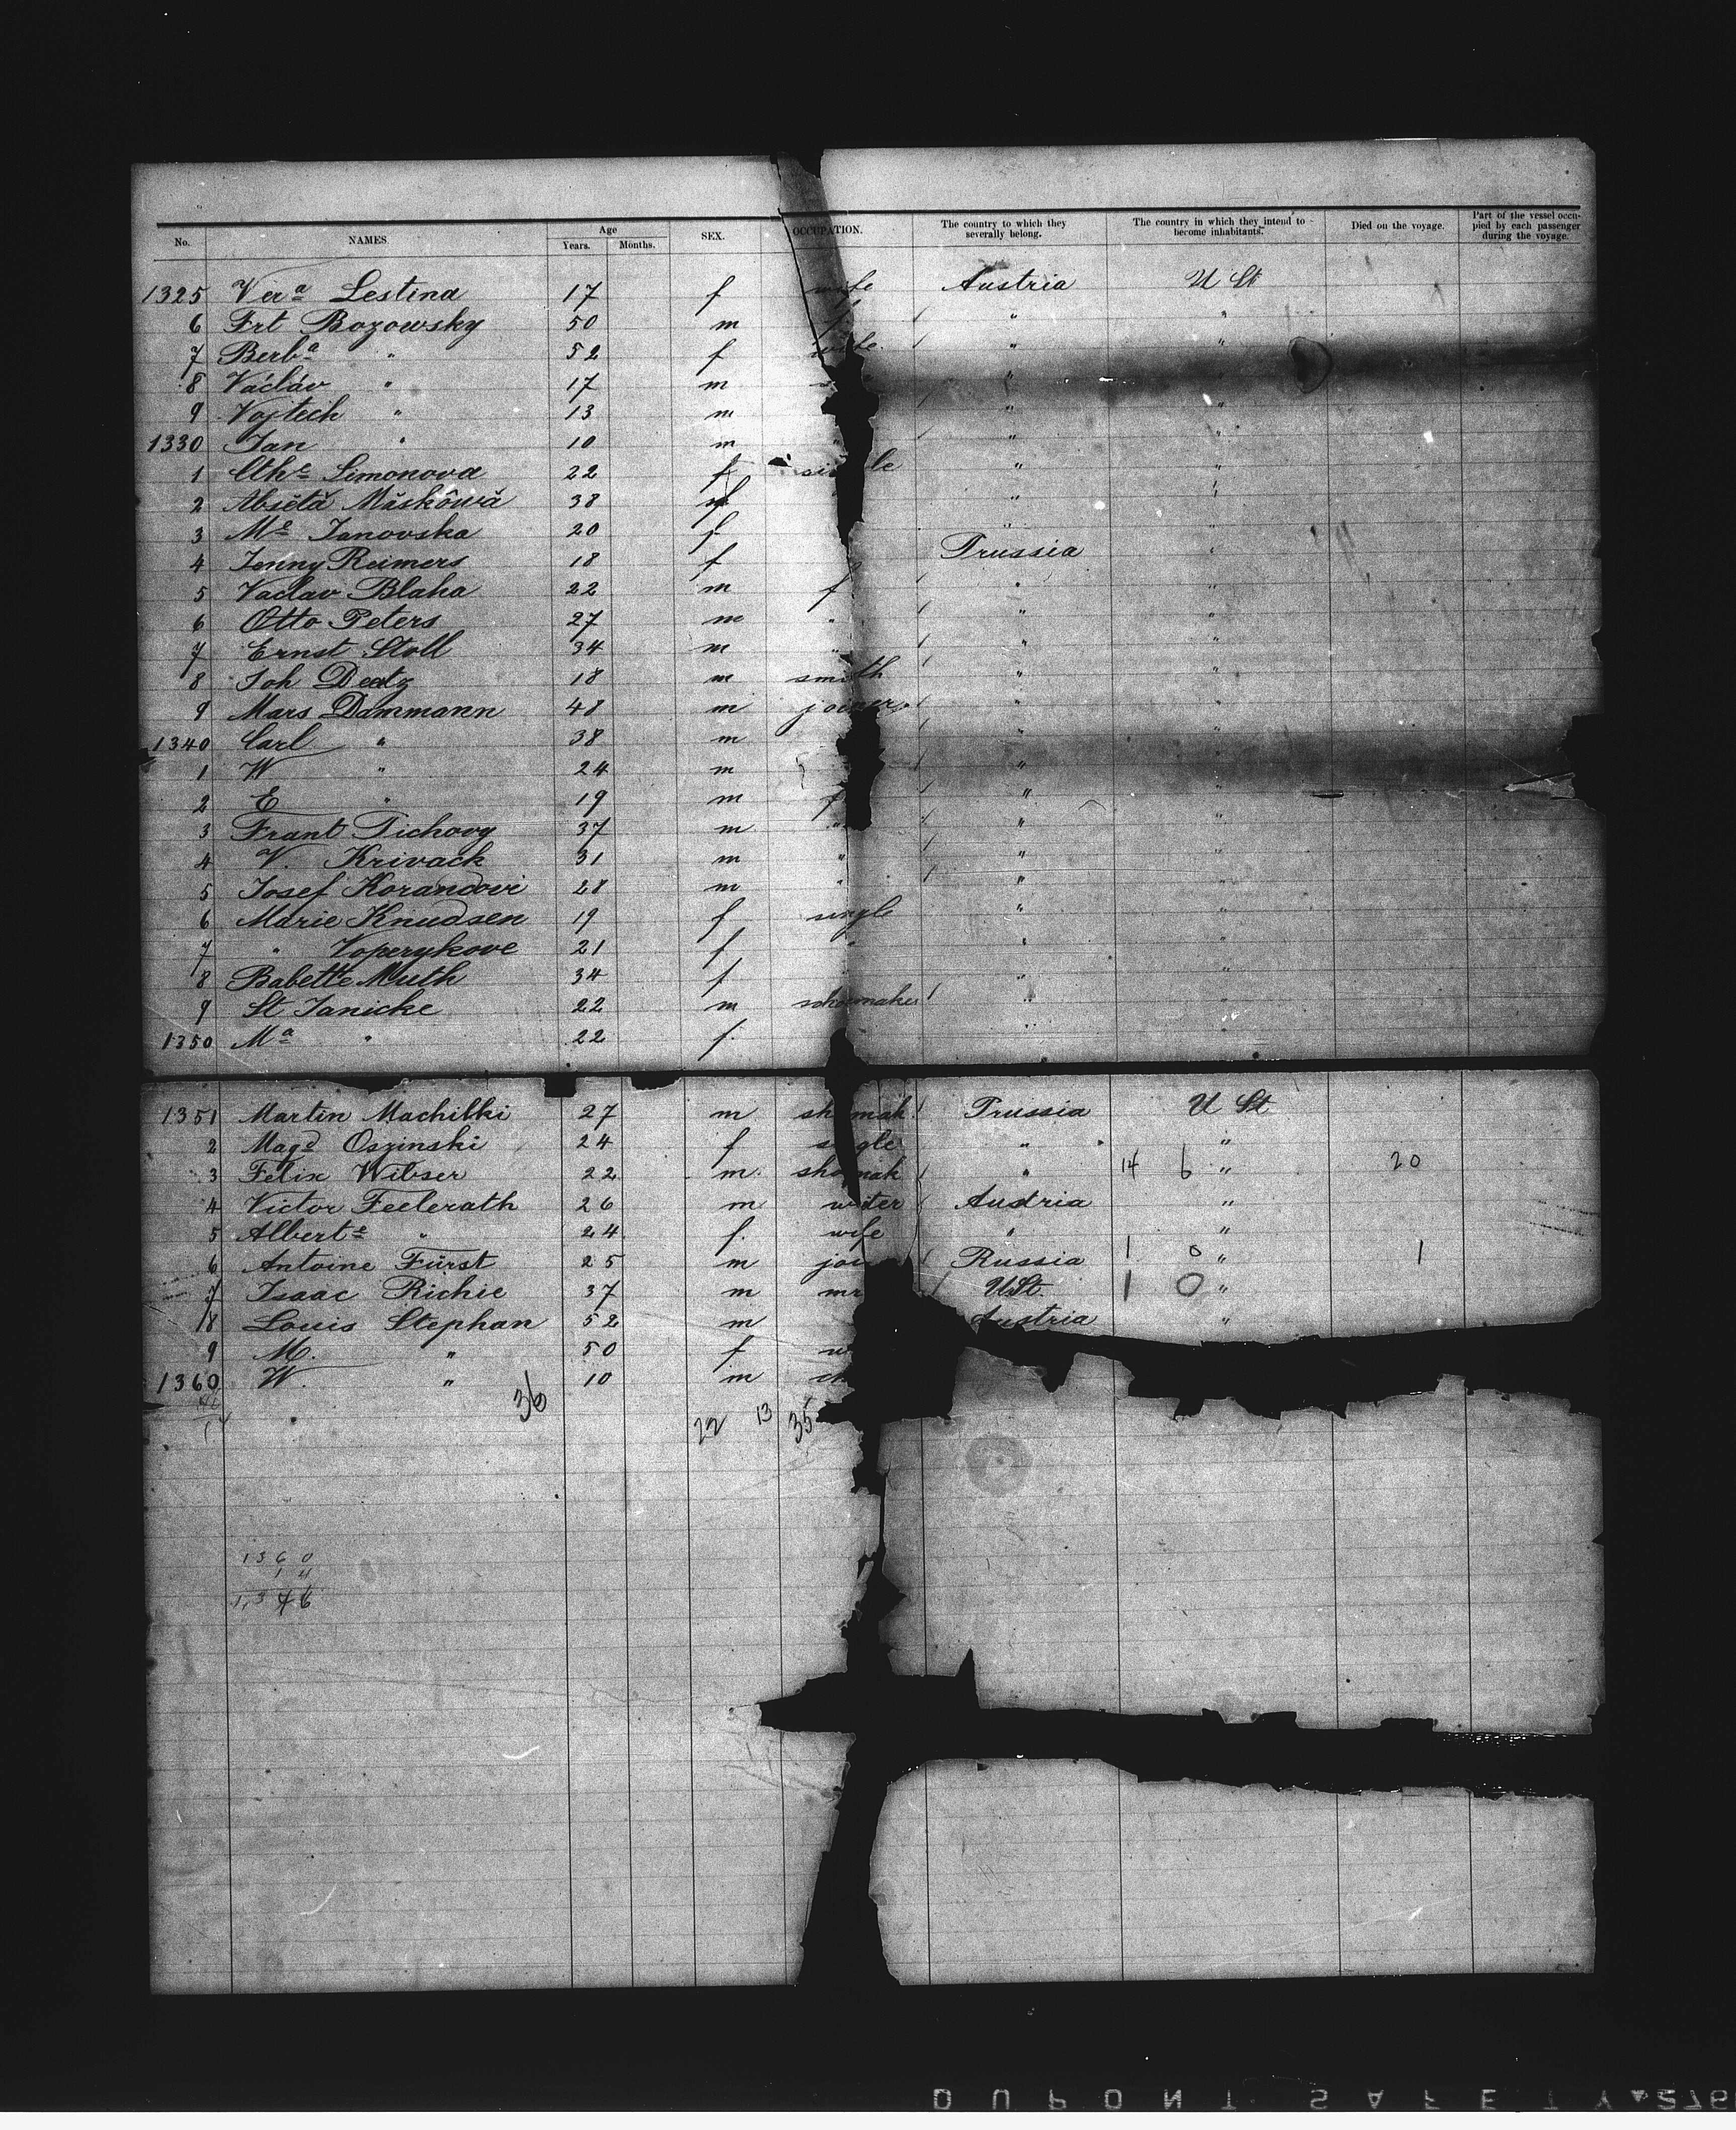 No. NAMES. Age Years. Months. SEX. OCCUPATION. The country to which they severally belong. The country in which they intend to become inhabitants. Died on the voyage. Part of the vessel occupied by each passenger during the voyage.
1325 Vera Lestina 17 f wife Austria U St
6 Frt Bozowsky 50 m f " "
7 Berba " 52 f wife " "
8 Václáv " 17 m " "
9 Vojtech " 13 m " "
1330 Jan " 10 m " " "
1 Cthe Simonova 22 f single " "
2 Absětă Măskôwă 38 f " "
3 Me Janovska 20 f " "
4 Jenny Reimers 18 f Prussia "
5 Vaclav Blaha 22 m f " "
6 Otto Peters 27 m " " "
7 Ernst Stoll 34 m " " "
8 Joh Deetz 18 m smith " "
9 Mars Dammann 48 m joiner " "
1340 Carl " 38 m " "
1 W " 24 m " "
2 E " 19 m f " "
3 Frant Tichovy 37 m " " "
4 V. Krivack 31 m " " "
5 Josef Korandovi 28 m " " "
6 Marie Knudsen 19 f single " "
7 " Voperykove 21 f " " "
8 Babette Muth 34 f " "
9 St Janicke 22 m schomaker " "
1350 Ma " 22 f. " "
1351 Martin Machilki 27 m shomak Prussia U St
2 Magd Oszinski 24 f single " "
3 Felix Wibser 22 m. shomak " 14 6 " 20
4 Victor Feelerath 26 m writer Austria "
5 Alberte " 24 f. wife " "
6 Antoine Fürst 25 m joi Russia 1 0 " 1
7 Isaac Richie 37 m mr USt. 1 0 "
8 Louis Stephan 52 m Austria "
9 M. " 50 f w
1360 W. " 10 m ch
36 22 13 35
1360
14
1,346
DUPONT SAFETY 276